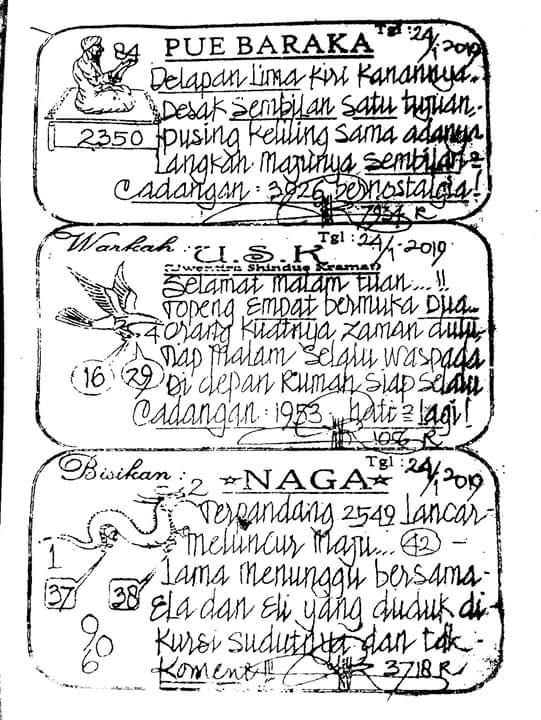 Tgl : 24/1-2019
84 PUE BARAKA
Delapan Lima Kiri Kanannya..
Desak Sembilan Satu tujuan,.
2350 pusing Keliling Sama adanya
Langkah Majunya Sembilan =
Cadangan : 3926 bernostalgia!
7934 R
Warkah : U.S.K Tgl : 24/1-2019
Selamat malam tuan...!!
Topeng Empat bermuka Dua...
4 Orang Kuatnya zaman dulu,
Tiap Malam Selalu Waspada
16 29 Di depan Rumah Siap Selalu
Cadangan : 1953 hati = lagi!
Tgl : 24/1-2019
Bisikan : NAGA
2 Terpandang 2549 Lancar-
Meluncur Maju... 42 -
1 Lama Menunggu bersama-
37 38 Ela dan Eli yang duduk di-
Kursi Sudutnya dan tdk -
906 Koment!!!
3718 R